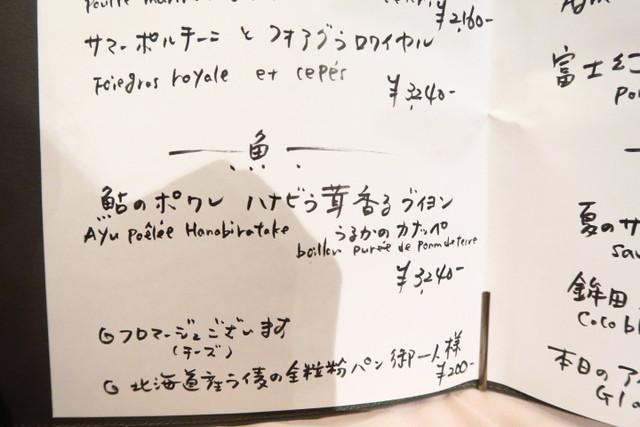 ¥2,160-
サマーポルチーニ と フォアグラ ロワイヤル
Foiegras royale et cepés
¥3,240-
魚
鮎のポワレ ハナビラ茸香るブイヨン
Ayu Poêlée Hanabiratake
うるかのカナッペ
boillon purée de Pomme de terre
¥3,240-
フロマージュございます
(チーズ)
北海道産ライ麦の全粒粉パン 御一人様
¥200-
富士幻
夏のサ
鉾田
Coco bl
本日のア
Gla